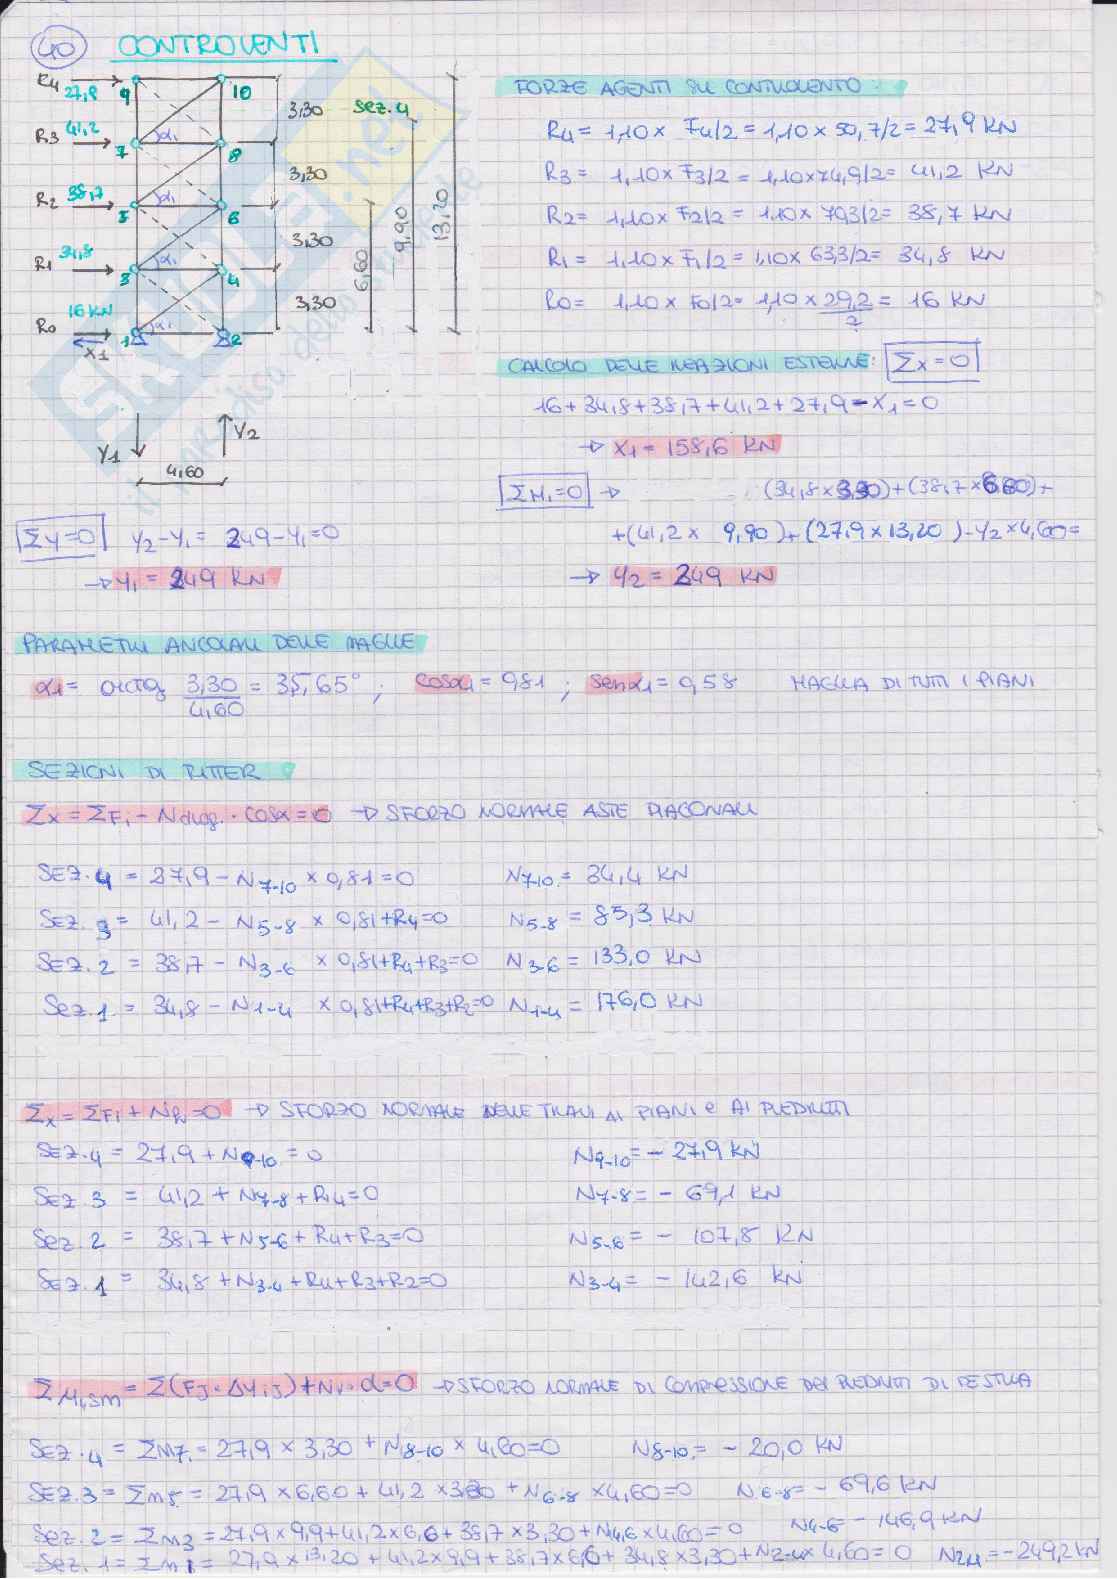 40 CONTROVENTI
R4 27,9 9 10 3,30 sez. 4
R3 41,2 7 α1 8 3,30
R2 38,7 5 α1 6 3,30
R1 34,8 3 α1 4 3,30
R0 16 KN 1 α1 2
X1
6,60 9,90 13,20
Y1 Y2
4,60
FORZE AGENTI SUL CONTROVENTO:
R4 = 1,10 x F4/2 = 1,10 x 50,7/2 = 27,9 KN
R3 = 1,10 x F3/2 = 1,10 x 74,9/2 = 41,2 KN
R2 = 1,10 x F2/2 = 1,10 x 70,3/2 = 38,7 KN
R1 = 1,10 x F1/2 = 1,10 x 63,3/2 = 34,8 KN
R0 = 1,10 x F0/2 = 1,10 x 29,2/2 = 16 KN
CALCOLO DELLE REAZIONI ESTERNE: Σx=0
16+34,8+38,7+41,2+27,9-X1=0
→ X1 = 158,6 KN
ΣM1=0 → (34,8x3,30)+(38,7x6,60)+
+(41,2x 9,90)+(27,9x13,20)-Y2x4,60=
→ Y2 = 249 KN
ΣY=0 Y2-Y1= 249-Y1=0
→ Y1 = 249 KN
PARAMETRI ANGOLARI DELLE MAGLIE
α1= arctg 3,30/4,60 = 35,65° ; cosα1 = 0,81 ; senα1 = 0,58 MAGLIA DI TUTTI I PIANI
SEZIONI DI RITTER
Σx = ΣFi - Ndiag. · cosα = 0 → SFORZO NORMALE ASTE DIAGONALI
SEZ. 4 = 27,9 - N7-10 x 0,81=0 N7-10 = 34,4 KN
SEZ. 3 = 41,2 - N5-8 x 0,81+R4=0 N5-8 = 85,3 KN
SEZ. 2 = 38,7 - N3-6 x 0,81+R4+R3=0 N3-6 = 133,0 KN
SEZ. 1 = 34,8 - N1-4 x 0,81+R4+R3+R2=0 N1-4 = 176,0 KN
Σx = ΣFi + NR=0 → SFORZO NORMALE DELLE TRAVI AI PIANI e AI PIEDRITTI
SEZ. 4 = 27,9 + N9-10 = 0 N9-10 = - 27,9 KN
SEZ. 3 = 41,2 + N7-8 + R4=0 N7-8 = - 69,1 KN
SEZ. 2 = 38,7 + N5-6 + R4+R3=0 N5-6 = - 107,8 KN
SEZ. 1 = 34,8 + N3-4 + R4+R3+R2=0 N3-4 = - 142,6 KN
Σ = Σ(FJ · ΔYiJ) + Nv · d = 0 → SFORZO NORMALE DI COMPRESSIONE DEI PIEDRITTI DI DESTRA
SEZ. 4 = ΣM7 = 27,9 x 3,30 + N8-10 x 4,60=0 N8-10 = - 20,0 KN
SEZ. 3 = ΣM5 = 27,9 x 6,60 + 41,2 x 3,30 + N6-8 x4,60=0 N6-8 = - 69,6 KN
SEZ. 2 = ΣM3 = 27,9x9,9+41,2x6,6+38,7 x3,30+N4,6 x4,60=0 N4-6 - 146,9 KN
SEZ. 1 = ΣM1 = 27,9 x 13,20 + 41,2x9,9 + 38,7x6,6 + 34,8 x3,30+N2-4x 4,60=0 N2,4 = -249,2KN
SKUOLA.net
il paradiso dello studente